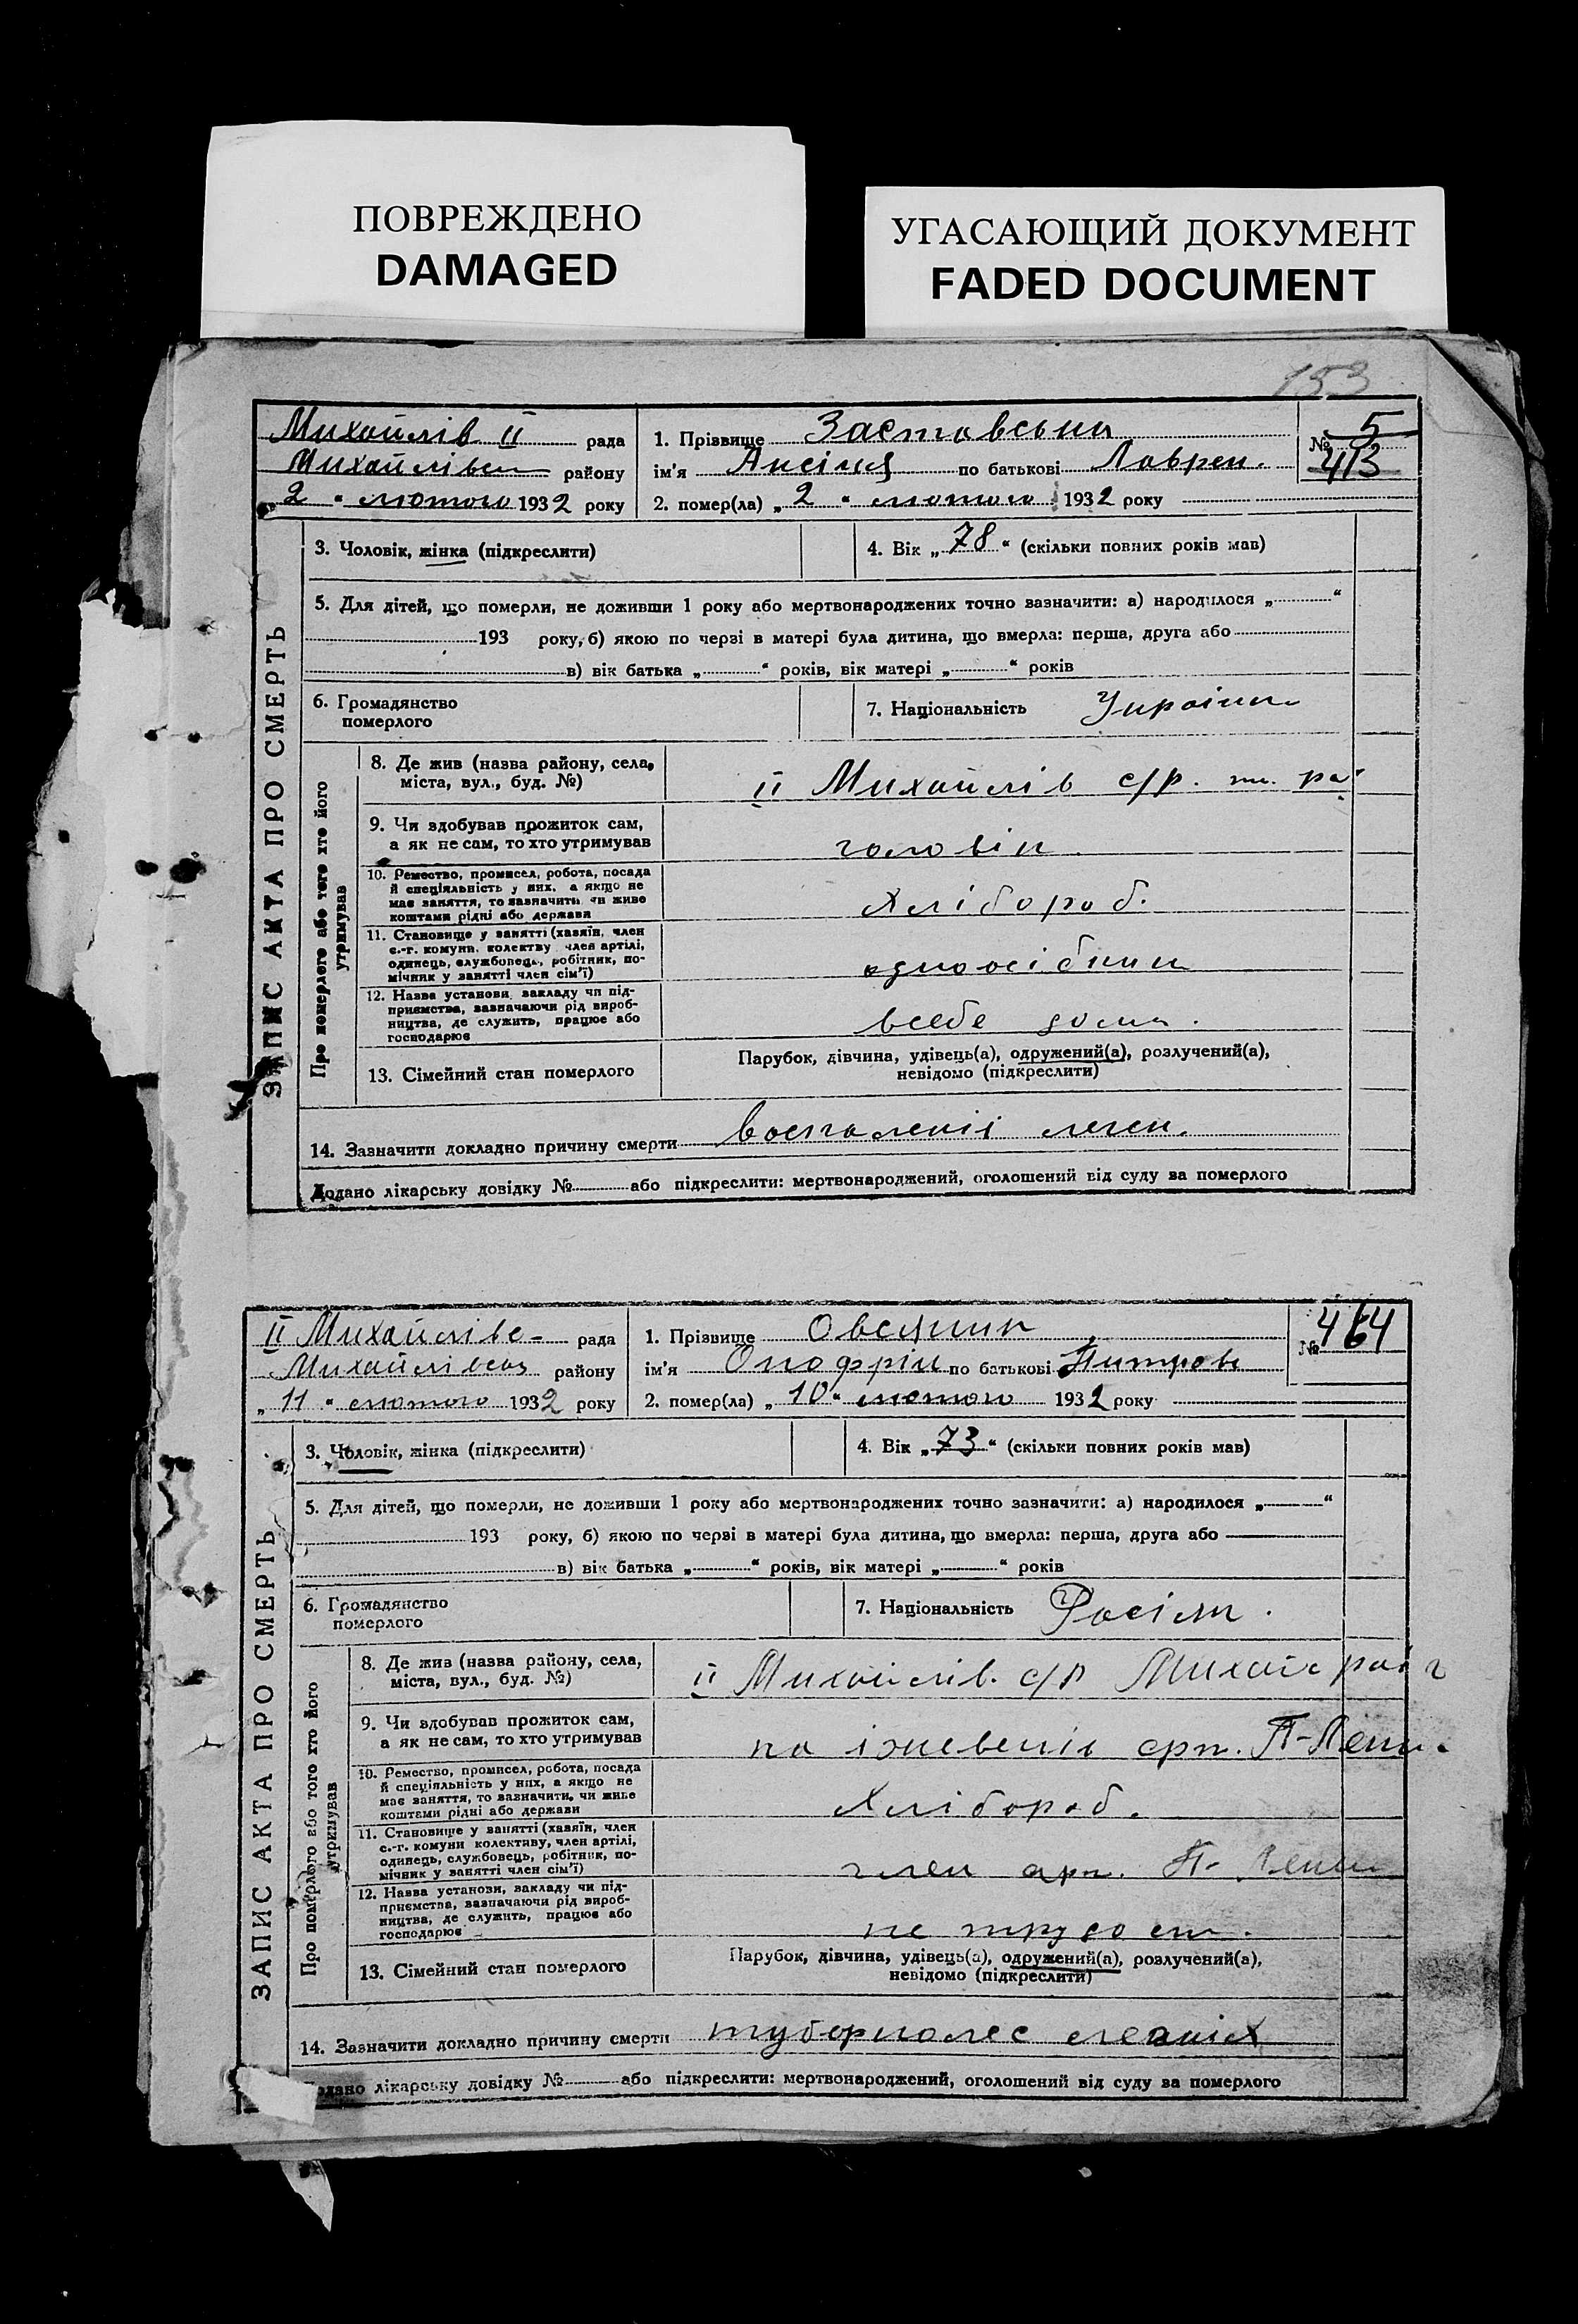 ПОВРЕЖДЕНО
DAMAGED
УГАСАЮЩИЙ ДОКУМЕНТ
FADED DOCUMENT
153
ЗАПИС АКТА ПРО СМЕРТЬ
Михайлів II рада
Михайлівськ району
2 " лютого 1932 року
1. Прізвище Заставська
ім'я Ансіня по батькові Лаврен.
2. помер(ла) „ 2 " лютого 1932 року
№ 5
413
3. Чоловік, жінка (підкреслити)
4. Вік „ 78 " (скільки повних років мав)
5. Для дітей, що померли, не доживши 1 року або мертвонароджених точно зазначити: а) народилося „ "
193 року, б) якою по черзі в матері була дитина, що вмерла: перша, друга або
в) вік батька „ " років, вік матері „ " років
6. Громадянство
померлого
7. Національність Україн
Про померлого або того хто його
утримував
8. Де жив (назва району, села,
міста, вул., буд. №)
II Михайлів с/р.
9. Чи здобував прожиток сам,
а як не сам, то хто утримував
чоловік
10. Ремество, промисел, робота, посада
й спеціяльність у них, а якщо не
має заняття, то зазначить чи живе
коштами рідні або держави
Хлібороб.
11. Становище у занятті (хазяїн, член
с.-г. комуни, колективу член артілі,
одинець, службовець, робітник, по-
мічник у занятті член сім'ї)
одноосібник
12. Назва установи, закладу чи під-
приємства, зазначаючи рід вироб-
ництва, де служить, працює або
господарює
всебе дома.
13. Сімейний стан померлого
Парубок, дівчина, удівець(а), одружений(а), розлучений(а),
невідомо (підкреслити)
14. Зазначити докладно причину смерти воспаленія леген.
Додано лікарську довідку № або підкреслити: мертвонароджений, оголошений від суду за померлого
ЗАПИС АКТА ПРО СМЕРТЬ
II Михайлівс- рада
Михайлівськ району
„ 11 " лютого 1932 року
1. Прізвище Овсяник
ім'я Онофрій по батькові Питров
2. помер(ла) „ 10 " лютого 1932 року
№ 464
3. Чоловік, жінка (підкреслити)
4. Вік „ 73 " (скільки повних років мав)
5. Для дітей, що померли, не доживши 1 року або мертвонароджених точно зазначити: а) народилося „ "
193 року, б) якою по черзі в матері була дитина, що вмерла: перша, друга або
в) вік батька „ " років, вік матері „ " років
6. Громадянство
померлого
7. Національність Росіян.
Про померлого або того хто його
утримував
8. Де жив (назва району, села,
міста, вул., буд. №)
II Михайлів. с/р
9. Чи здобував прожиток сам,
а як не сам, то хто утримував
на
10. Ремество, промисел, робота, посада
й спеціяльність у них, а якщо не
має заняття, то зазначити, чи живе
коштами рідні або держави
Хлібороб.
11. Становище у занятті (хазяїн, член
с.-г. комуни колективу, член артілі,
одинець, службовець, робітник, по-
мічник у занятті член сім'ї)
член арт.
12. Назва установи, закладу чи під-
приємства, зазначаючи рід вироб-
ництва, де служить, працює або
господарює
не
13. Сімейний стан померлого
Парубок, дівчина, удівець(а), одружений(а), розлучений(а),
невідомо (підкреслити)
14. Зазначити докладно причину смерти туберкольос
Додано лікарську довідку № або підкреслити: мертвонароджений, оголошений від суду за померлого